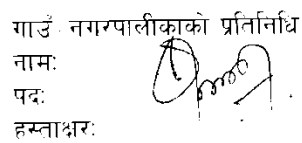 गाउँ नगरपालीकाको प्रतिनिधि
नामः
पदः
हस्ताक्षरः